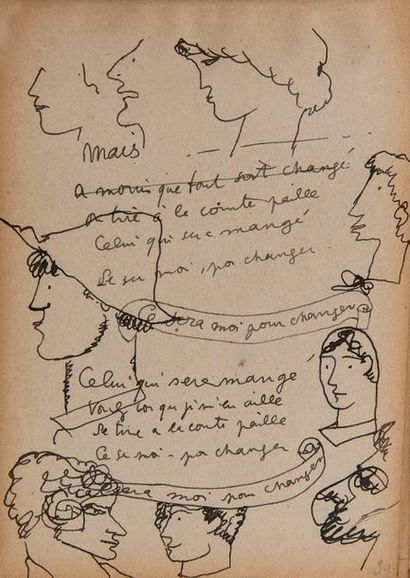 Mais
a moins que tout soit changé
on tire à la courte paille
Celui qui sera mangé
Ce ser moi, por changer
Ce sera moi pour changer
Celui qui sera mangé
se tire a la courte paille
Ce se moi - por changer
sera moi pour changer
39